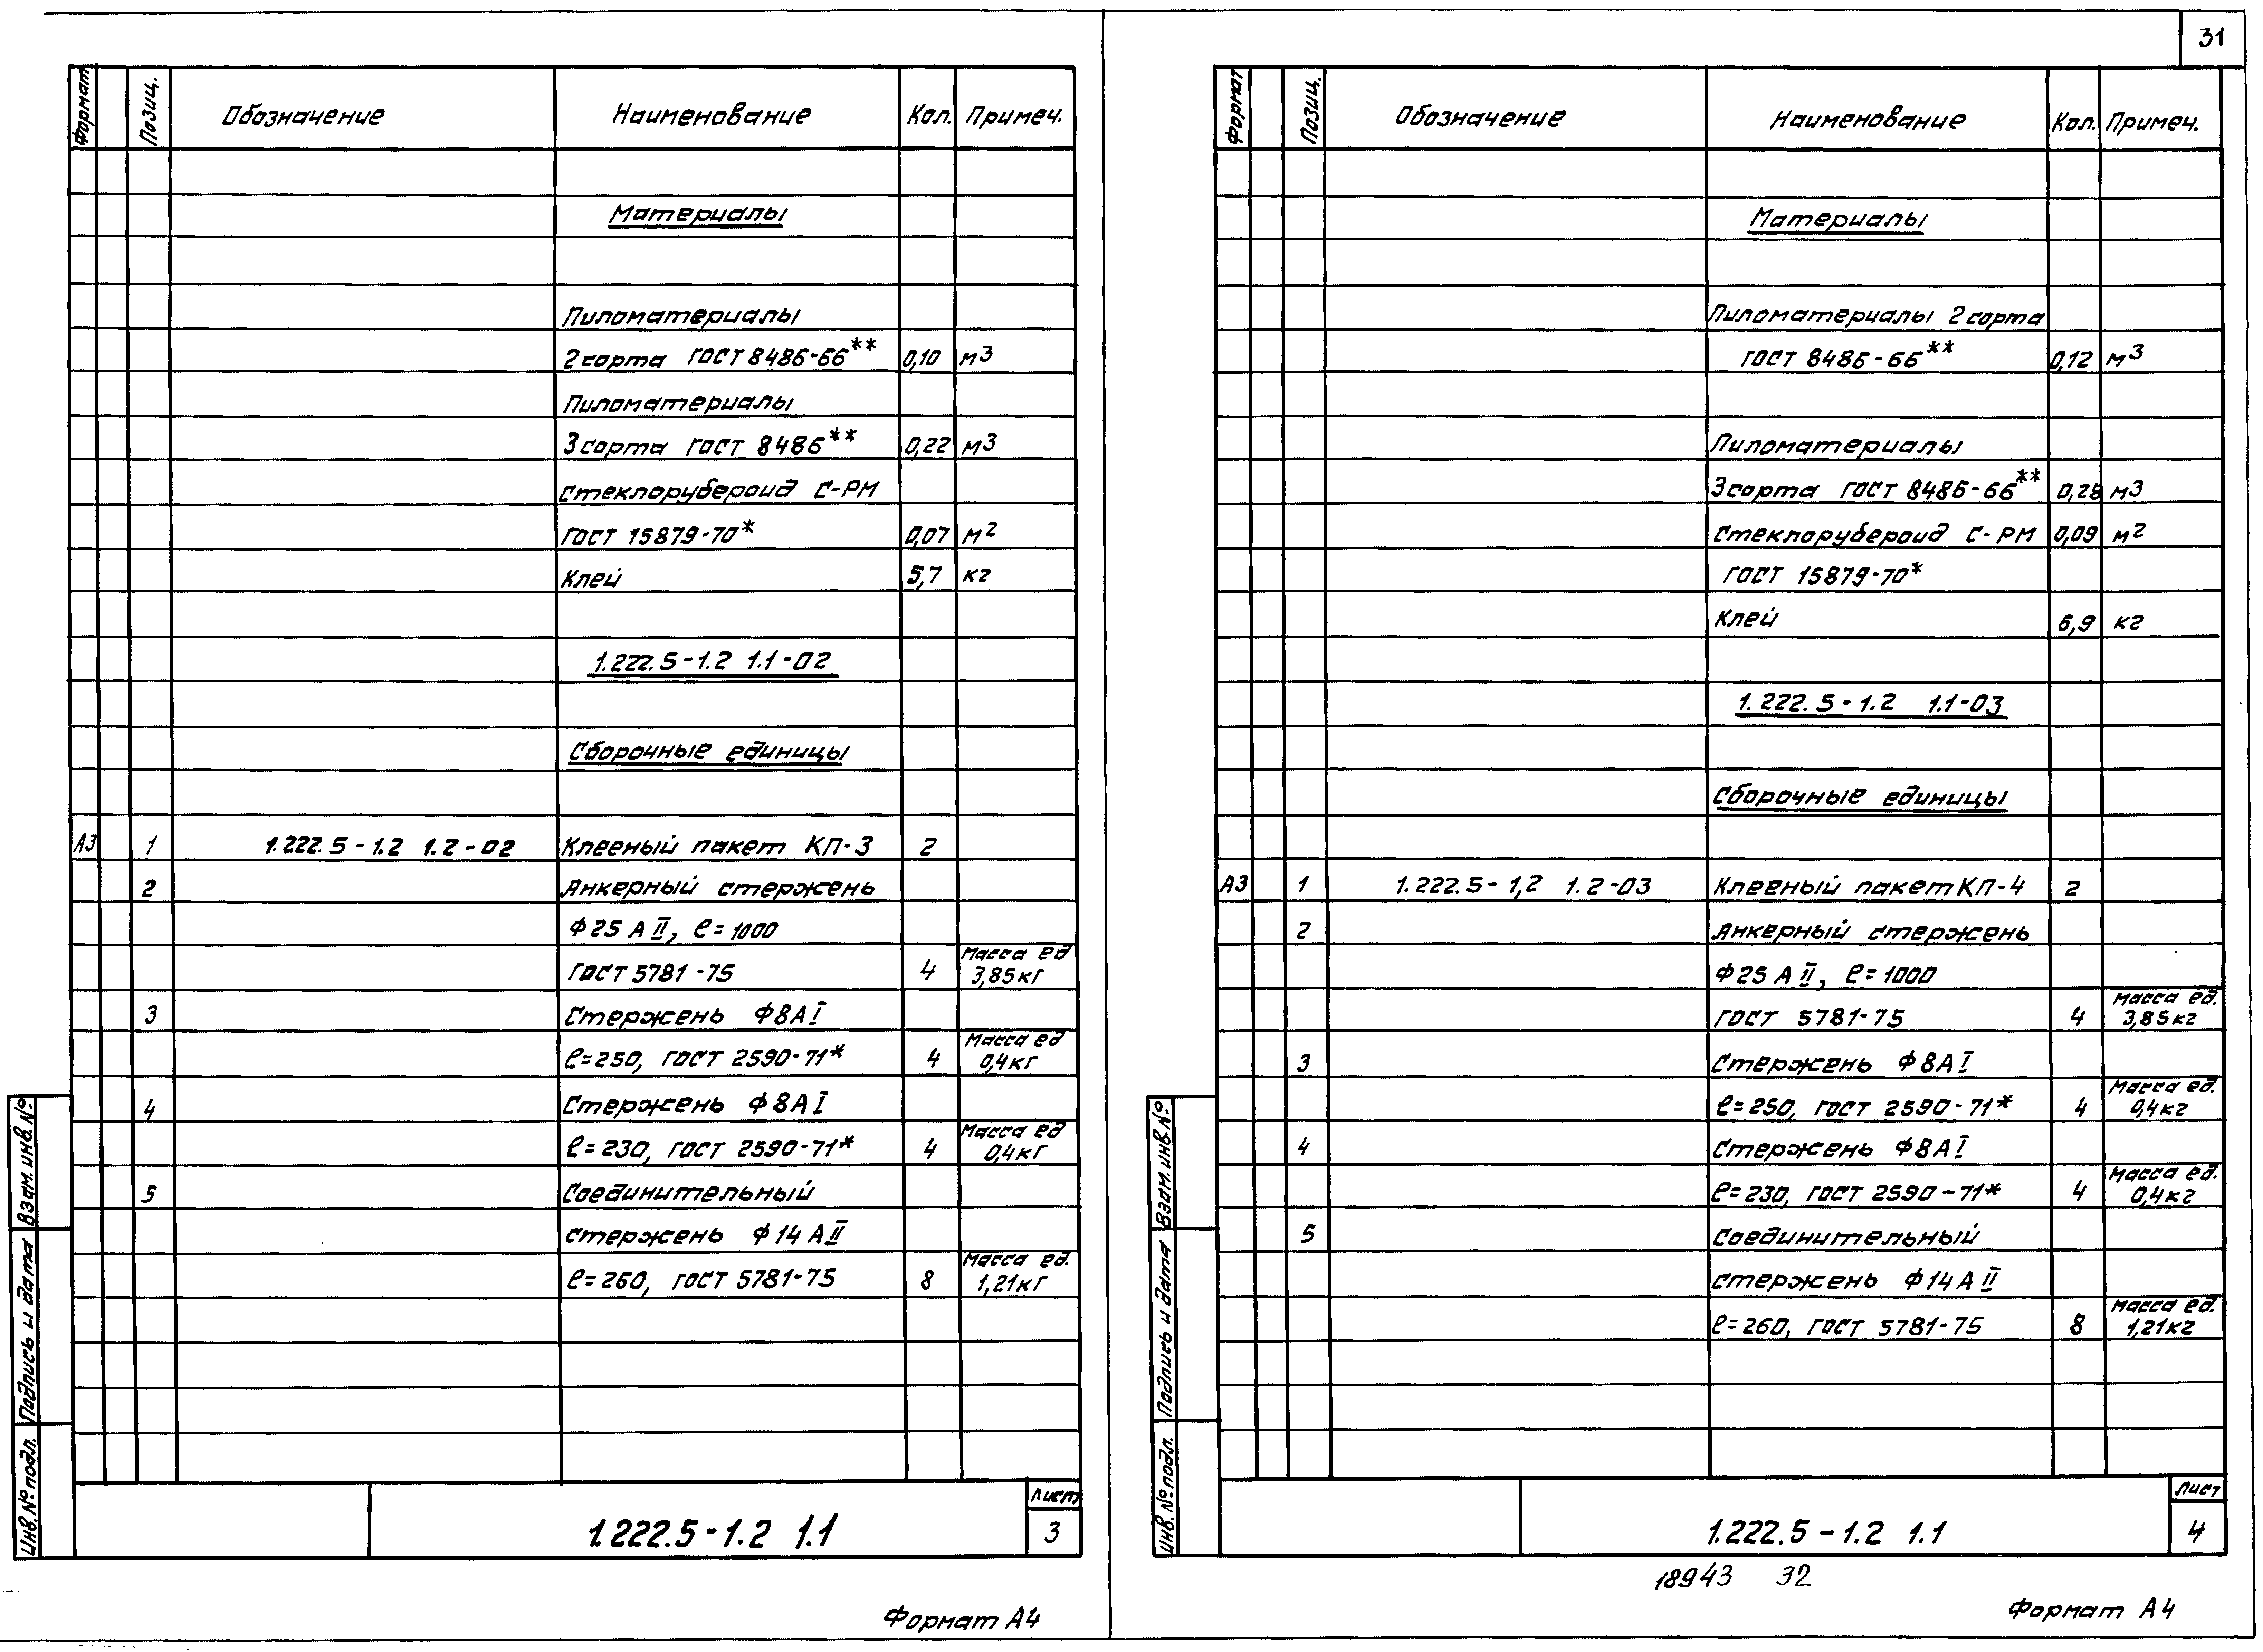 31
Формат Позиц. Обозначение Наименование Кол. Примеч.
Материалы
Пиломатериалы
2 сорта ГОСТ 8486-66** 0,10 м3
Пиломатериалы
3 сорта ГОСТ 8486** 0,22 м3
Стеклорубероид С-РМ
ГОСТ 15879-70* 0,07 м2
Клей 5,7 кг
1.222.5-1.2 1.1-02
Сборочные единицы
А3 1 1.222.5-1.2 1.2-02 Клееный пакет КП-3 2
2 Анкерный стержень
Ф25 А II, ℓ=1000
Масса ед
ГОСТ 5781-75 4 3,85 кг
3 Стержень Ф8АI
Масса ед
ℓ=250, ГОСТ 2590-71* 4 0,4 кг
4 Стержень Ф8АI
Масса ед
ℓ=230, ГОСТ 2590-71* 4 0,4 кг
5 Соединительный
стержень Ф14 АII
Масса ед.
ℓ=260, ГОСТ 5781-75 8 1,21 кг
Взам. инв. №
Подпись и дата
Инв. № подл.
Лист
1.222.5-1.2 1.1 3
Формат А4
Формат Позиц. Обозначение Наименование Кол. Примеч.
Материалы
Пиломатериалы 2 сорта
ГОСТ 8486-66** 0,12 м3
Пиломатериалы
3 сорта ГОСТ 8486-66** 0,28 м3
Стеклорубероид С-РМ 0,09 м2
ГОСТ 15879-70*
Клей 6,9 кг
1.222.5-1.2 1.1-03
Сборочные единицы
А3 1 1.222.5-1,2 1.2-03 Клееный пакет КП-4 2
2 Анкерный стержень
Ф25 А II, ℓ=1000
Масса ед.
ГОСТ 5781-75 4 3,85 кг
3 Стержень Ф8АI
Масса ед.
ℓ=250, ГОСТ 2590-71* 4 0,4 кг
4 Стержень Ф8АI
Масса ед.
ℓ=230, ГОСТ 2590-71* 4 0,4 кг
5 Соединительный
стержень Ф14А II
Масса ед.
ℓ=260, ГОСТ 5781-75 8 1,21 кг
Взам. инв. №
Подпись и дата
Инв. № подл.
Лист
1.222.5-1.2 1.1 4
18943 32
Формат А4